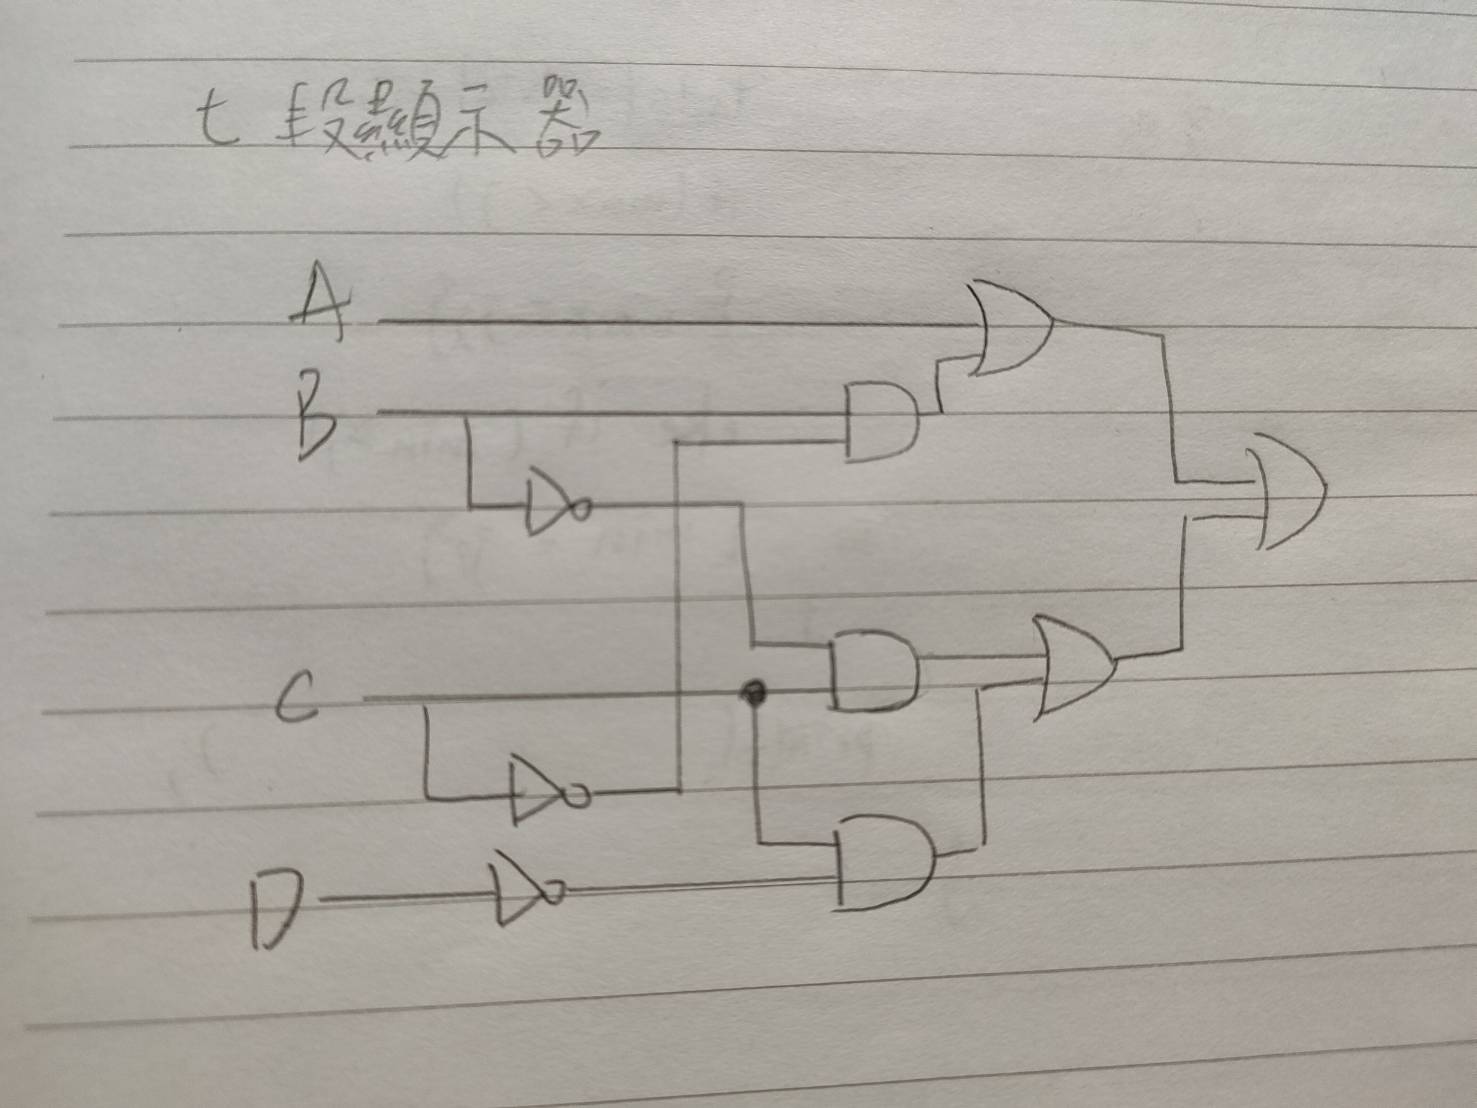 七段顯示器
A
B
C
D